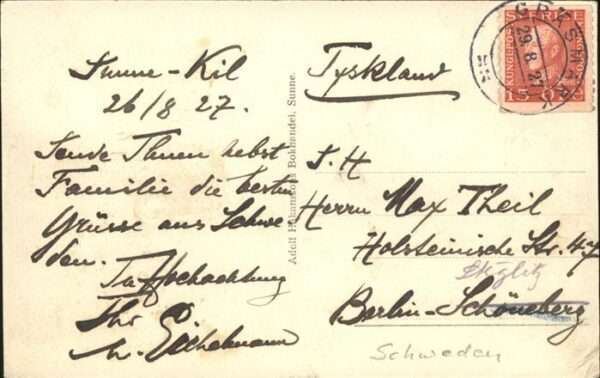 Sunne-Kil
26/8 27.
Sende Ihnen nebst
Familie die besten
Grüsse aus Schwe-
den.
Ihr
Eichelmann
Adolf Bokhandel, Sunne.
Tyskland
S. H
Herrn Max Theil
Holsteinische Str. 47
Steglitz
Berlin-Schöneberg
Schweden
SVERIGE
15
GRYSMARK
29.8.27